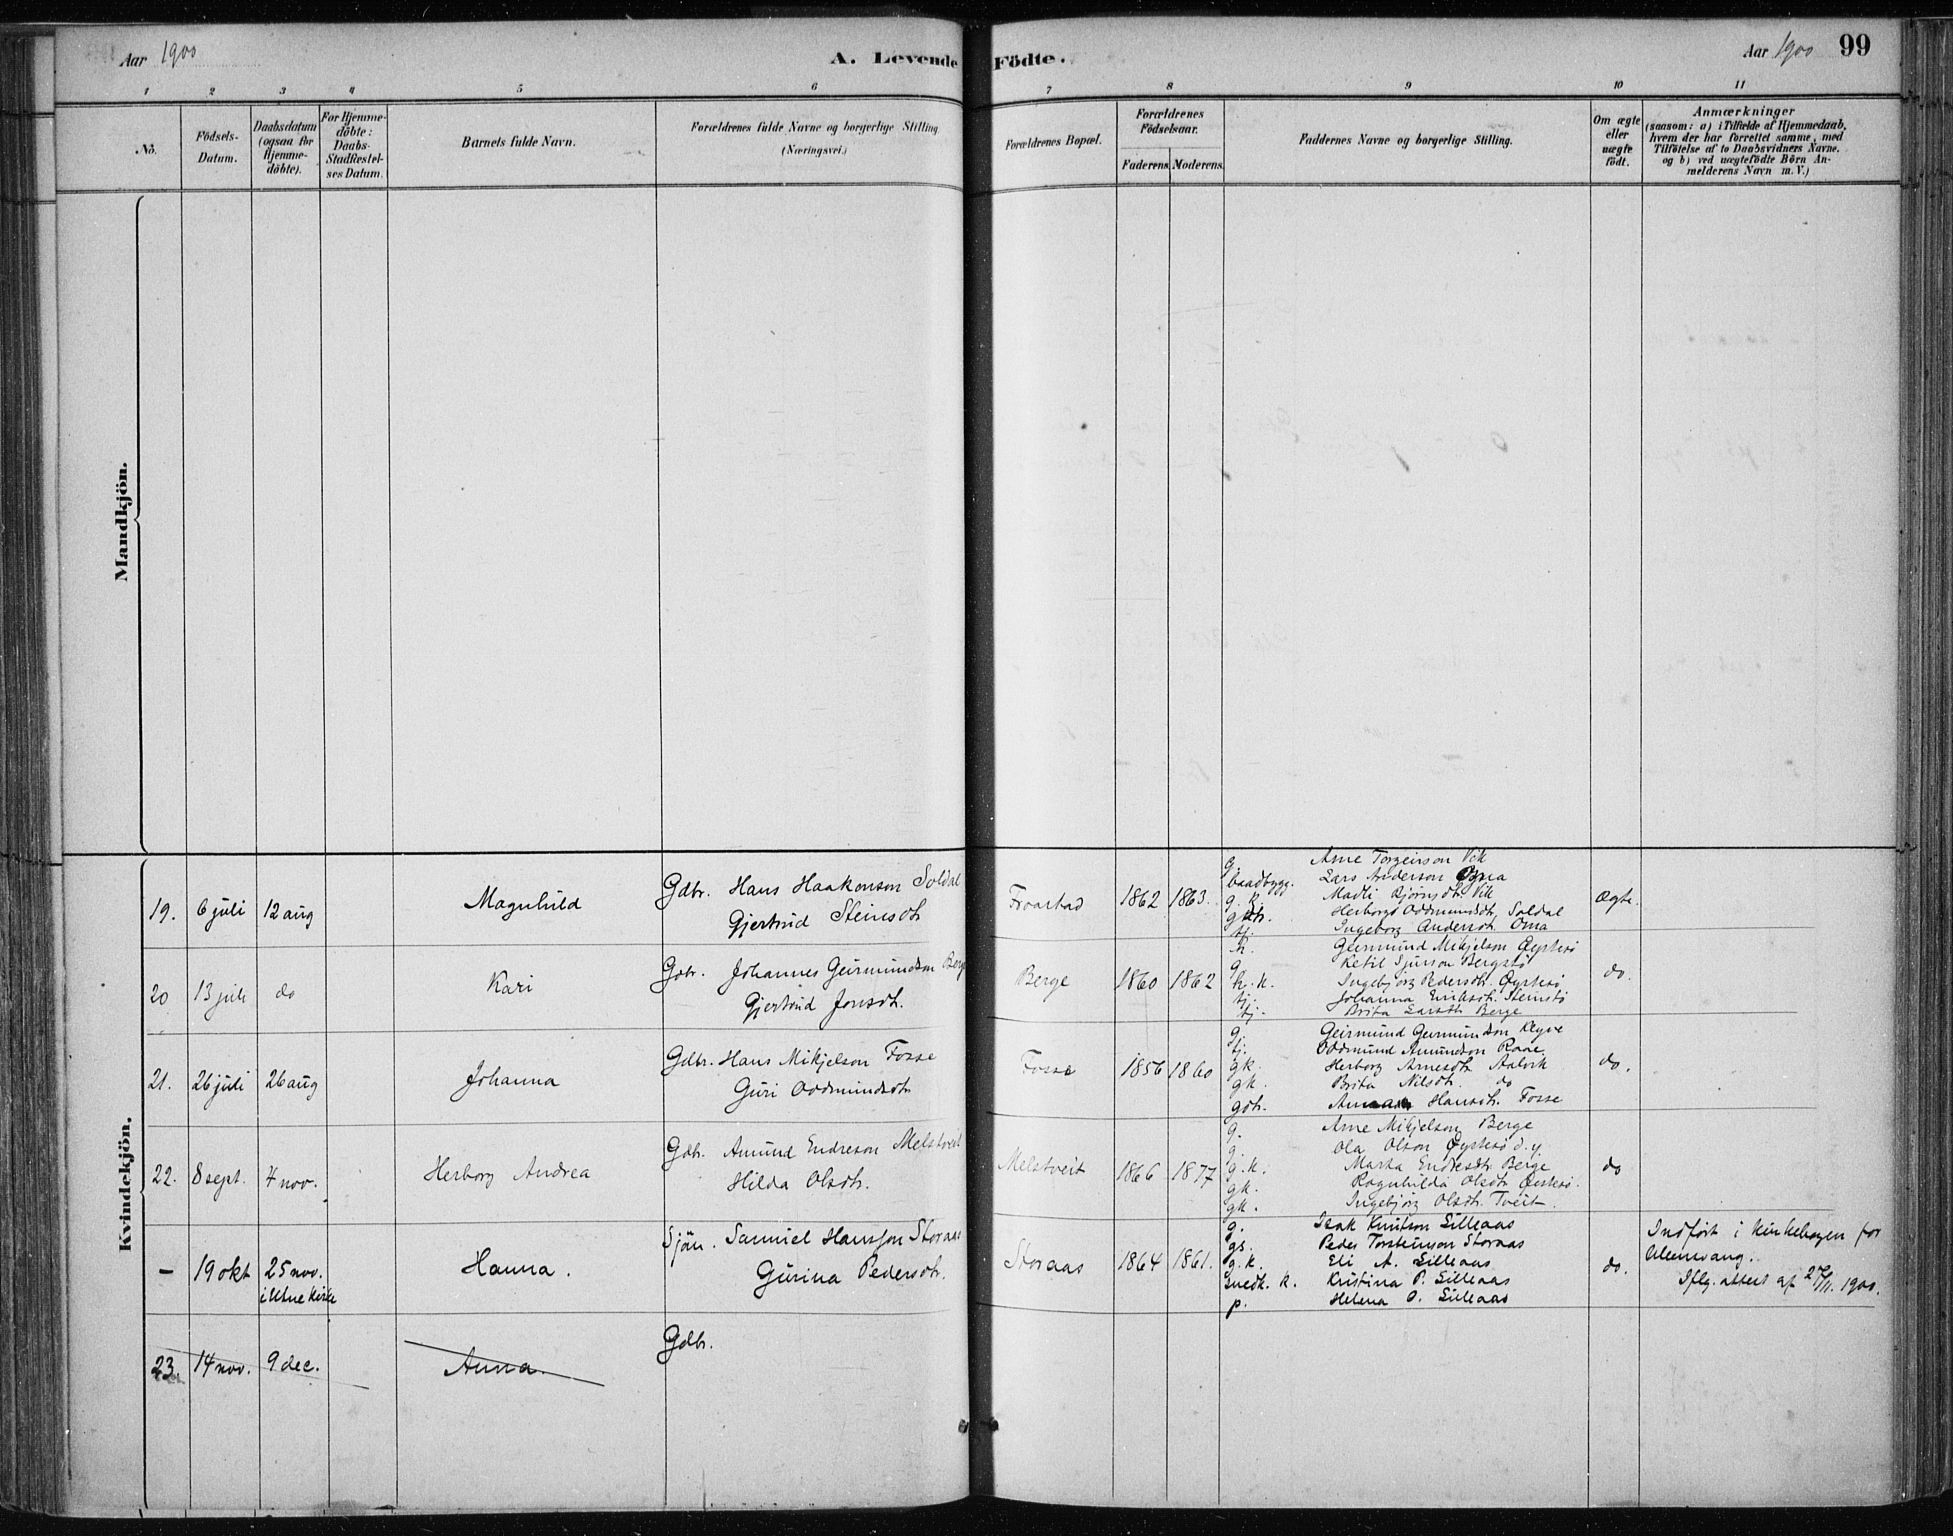 Aar 1900
A. Levende Födte.
Aar 1900 99
1 2 3 4 5 6 7 8 9 10 11
No.
Födsels-Datum.
Daabsdatum (ogsaa for Hjemme-döbte).
For Hjemme-döbte: Daabs-Stadfæstel-ses Datum.
Barnets fulde Navn.
Forældrenes fulde Navne og borgerlige Stilling (Næringsvei.)
Forældrenes Bopæl.
Forældrenes Födselsaar.
Faderens. Moderens.
Faddernes Navne og borgerlige Stilling.
Om ægte eller uægte födt.
Anmærkninger
(saasom: a) i Tilfælde af Hjemmedaab,
hvem der har forrettet samme, med
Tilföielse af to Daabsvidners Navne.
og b) ved uægtefödte Börn An-
melderens Navn m. V.)
Mandkjön.
Kvindekjön.
19. 6 juli 12 aug Magnhild
Gdbr. Hans Haakonson Soldal
Gjertrud Steinsdt.
1862 1863. Ægte.
g. Arne Torgeirson Vik
baadbygg. Lars Anderson
g. k. Madli Bjørnsdt. Vik
Herborg Oddmundsdt. Soldal
tj. Ingeborg Andersdt. Oma
20 13 juli do Kari
Gdbr. Johannes Geirmundson Berge
Gjertrud Jonsdt.
Berge 1860 1862 do.
k. Geirmund Mikjelson Øystesø
g. Ketil Sjurson Bergstø
h. k. Ingebjörg Pedersdt. Øystesø
tj. Johanna Eriksdt. Steinstø
tj. Brita Larsdt. Berge
21. 26 juli 26 aug Johanna
Gdbr. Hans Mikjelson Fosse
Guri Oddmundsdt.
Fosse 1856 1860 do.
g. Geirmund Geirmundson
tj. Oddmund Amundson
gk. Herborg Arnesdt. Aalvik
gk. Brita Nilsdt. do
gdt. Hansdt. Fosse
22. 8 sept. 4 nov. Herborg Andrea
Gdbr. Amund Endreson Melstveit
Hilda Olsdt.
Melstveit 1866 1877 do
g. Arne Mikjelson Berge
g. Ola Olson Øystesø d.y.
g.k. Marta Endresdt. Berge
gk. Ragnhilda Olsdt. Øystesø.
gk. Ingebjörg Olsdt. Tveit.
– 19 okt 25 nov. i Utne kirke Hanna.
Sjöm. Samuel Hansson Storaas
Gurina Pedersdt.
Storaas 1864 1861. do.
g. Isak Knutson Lilleaas
gs. Peder Torsteinson Storaas
g.k. Eli A. Lilleaas
Snedk. k. Kristina P. Lilleaas
p. Helena O. Lilleaas
Indført i kirkebogen for
Ullensvang.
Iflg. attest af 27/11. 1900.
23. 14 nov. 9 dec. Anna.
Gdbr.